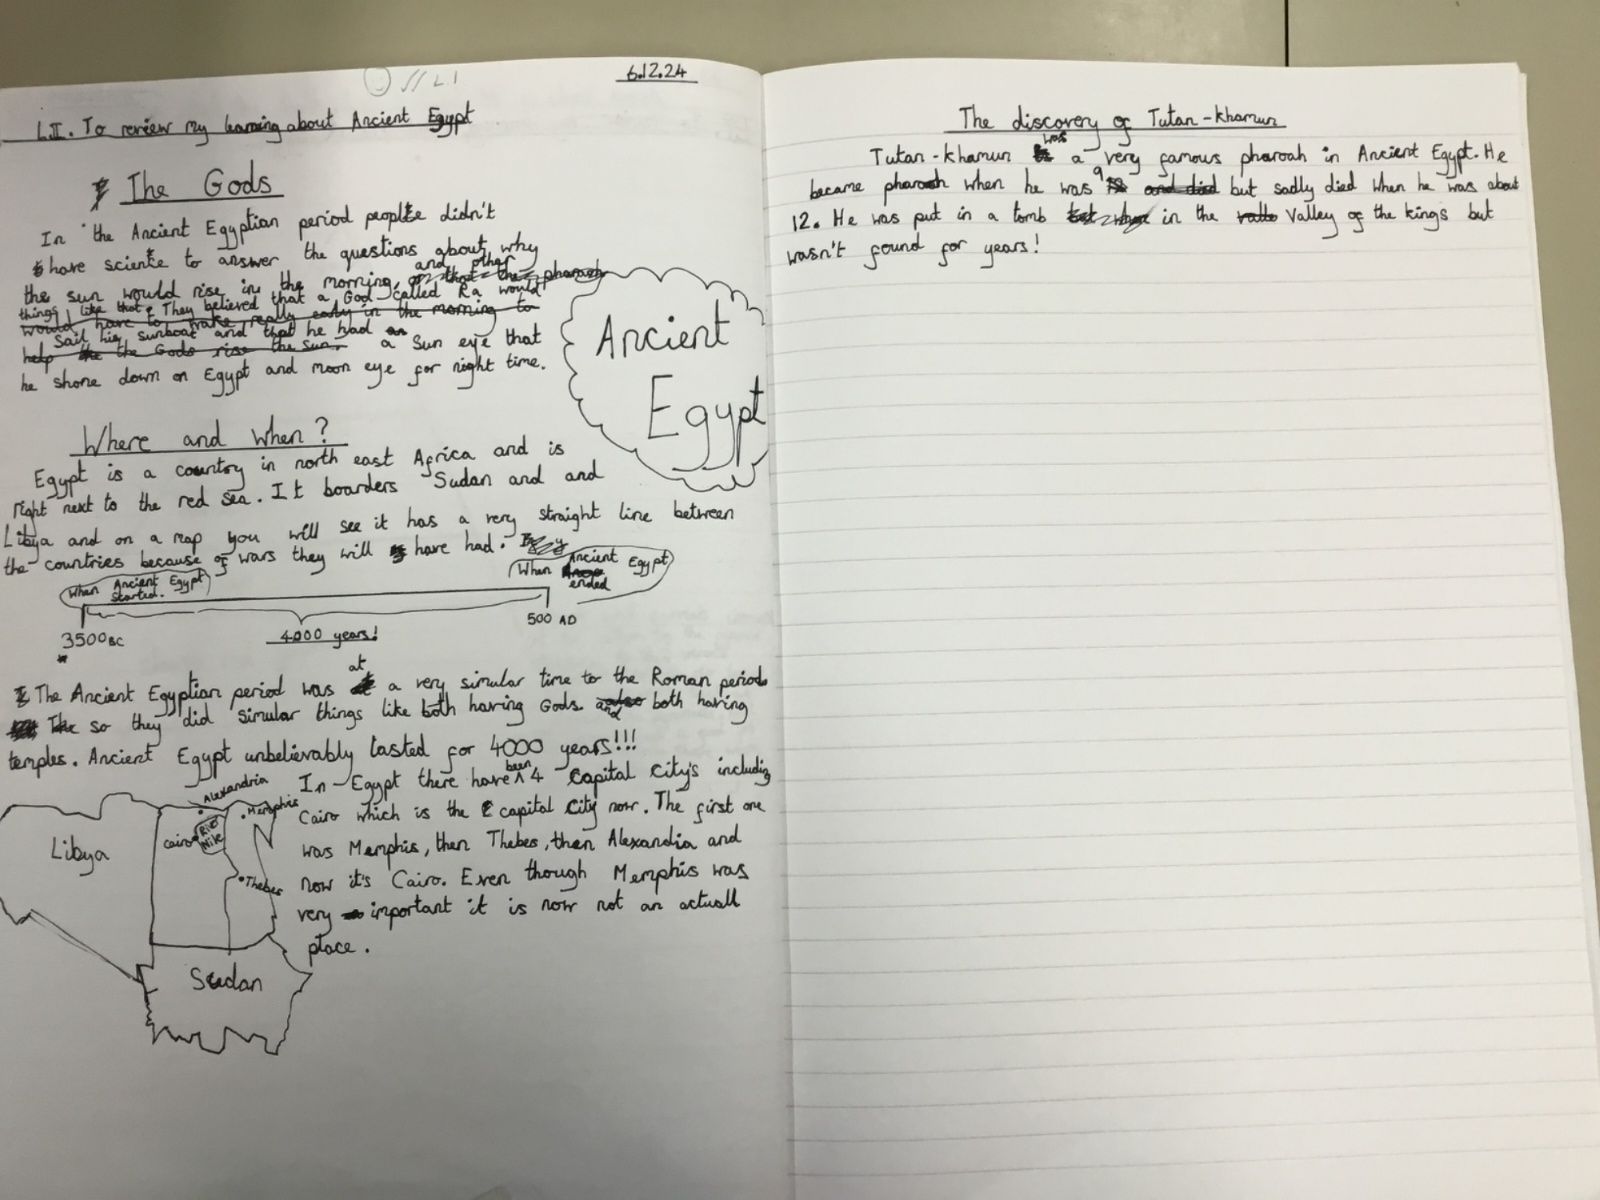 6.12.24
L.I. To review my learning about Ancient Egypt
The Gods
In the Ancient Egyptian period people didn't
have science to answer the questions about why
the sun would rise in the morning, and other
things like that. They believed that a God called Ra would
sail his sunboat and that he had
a Sun eye that
he shone down on Egypt and moon eye for night time.
Ancient
Egypt
Where and when?
Egypt is a country in north east Africa and is
right next to the red sea. It boarders Sudan and and
Libya and on a map you will see it has a very straight line between
the countries because of wars they will have had.
When Ancient Egypt
started.
When Ancient Egypt
ended
3500 BC
4000 years!
500 AD
The Ancient Egyptian period was at a very simular time to the Roman period
so they did simular things like both having Gods and both having
temples. Ancient Egypt unbelievably lasted for 4000 years!!!
In Egypt there have been 4 capital city's including
Cairo which is the capital city now. The first one
was Memphis, then Thebes, then Alexandia and
now it's Cairo. Even though Memphis was
very important it is now not an actuall
place.
Alexandria
Memphis
Cairo
River
Nile
Thebes
Libya
Sudan
The discovery of Tutan-khamun
Tutan-khamun was a very famous pharoah in Ancient Egypt. He
became pharoah when he was 9 but sadly died when he was about
12. He was put in a tomb in the Valley of the kings but
wasn't found for years!